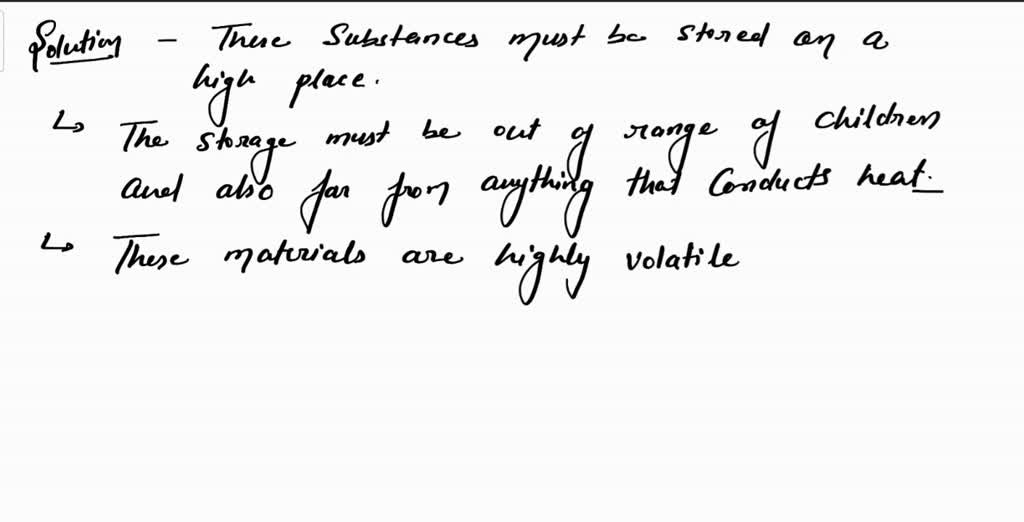 Solution - These Substances must be stored on a
high place.
↳ The storage must be out of range of children
and also far from anything that Conducts heat.
↳ These materials are highly volatile